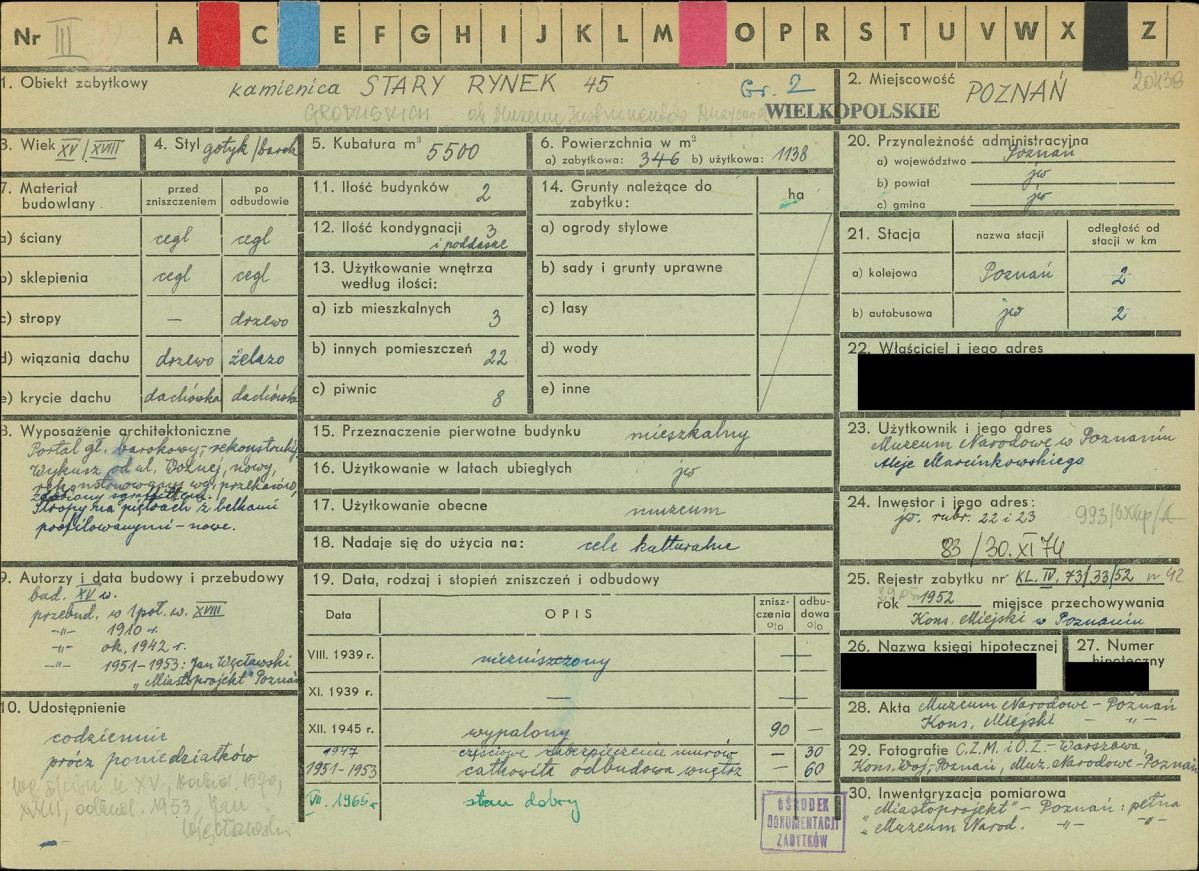 Nr III A C E F G H I J K L M O P R S T U V W X Z
1. Obiekt zabytkowy kamienica STARY RYNEK 45 Gr. 2
GRODZISKICH ob. Muzeum Instrumentów Muzycznych
WIELKOPOLSKIE
2. Miejscowość POZNAŃ
3. Wiek XV/XVIII
4. Styl gotyk/barok
5. Kubatura m³ 5500
6. Powierzchnia w m²
a) zabytkowa: 346 b) użytkowa: 1138
7. Materiał budowlany
przed zniszczeniem
po odbudowie
a) ściany cegl cegl
b) sklepienia cegl cegl
c) stropy — drzewo
d) wiązania dachu drzewo żelazo
e) krycie dachu dachówka dachówka
8. Wyposażenie architektoniczne
Portal gł. barokowy, rekonstrukcj.
Wykusz od ul. Woźnej, nowy,
rekonstruowany wg. przekazów,
zdobiony sgraffittem.
Stropy na piętrach z belkami
profilowanymi – nowe.
9. Autorzy i data budowy i przebudowy
bud. XV w.
przebud. w 1 poł. w. XVIII
–"– 1910 r.
–"– ok. 1942 r.
–"– 1951–1953: Jan Węcławski
"Miastoprojekt" Poznań
10. Udostępnienie
codziennie
prócz poniedziałków
XVIII, odbud. 1953, Jan
Węcławski
11. Ilość budynków 2
12. Ilość kondygnacji 3
i poddasze
13. Użytkowanie wnętrza
według ilości:
a) izb mieszkalnych 3
b) innych pomieszczeń 22
c) piwnic 8
14. Grunty należące do
zabytku: ha
a) ogrody stylowe
b) sady i grunty uprawne
c) lasy
d) wody
e) inne
15. Przeznaczenie pierwotne budynku mieszkalny
16. Użytkowanie w latach ubiegłych jw
17. Użytkowanie obecne muzeum
18. Nadaje się do użycia na: cele kulturalne
19. Data, rodzaj i stopień zniszczeń i odbudowy
Data OPIS znisz-czenia % odbu-dowa %
VIII. 1939 r. niezniszczony —
XI. 1939 r. — —
XII. 1945 r. wypalony 90 —
1947 częściowe zabezpieczenie murów — 30
1951–1953 całkowita odbudowa wnętrz — 60
VII. 1965 r stan dobry
OŚRODEK
DOKUMENTACJI
ZABYTKÓW
20. Przynależność administracyjna
a) województwo Poznań
b) powiat jw
c) gmina jw
21. Stacja nazwa stacji odległość od stacji w km
a) kolejowa Poznań 2
b) autobusowa jw 2
22. Właściciel i jego adres
23. Użytkownik i jego adres
Muzeum Narodowe w Poznaniu
Aleje Marcinkowskiego
24. Inwestor i jego adres:
jw. rubr. 22 i 23
83/30.XI 74
25. Rejestr zabytku nr KL. IV. 73/33/52
rok 1952 miejsce przechowywania
Kons. Miejski w Poznaniu
26. Nazwa księgi hipotecznej
27. Numer
hipoteczny
28. Akta Muzeum Narodowe – Poznań
Kons. Miejski – –"–
29. Fotografie C.Z.M. i O.Z. – Warszawa,
Kons. Woj. – Poznań, Muz. Narodowe – Poznań
30. Inwentaryzacja pomiarowa
"Miastoprojekt" – Poznań: pełna
"Muzeum Narod. –"– –"–